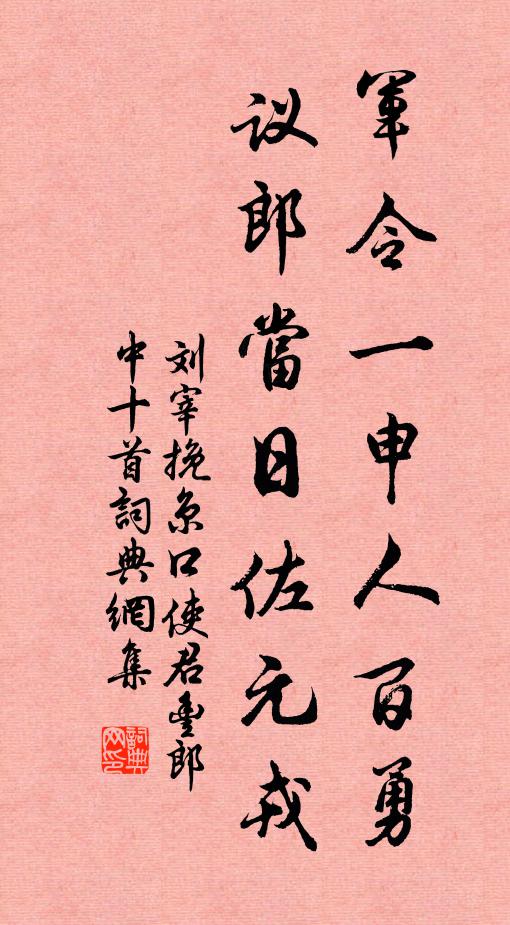 军令一申人百勇
议郎當日佐元戎
刘宰挽京口使君豊郎
中十首詞典網集
詞典網印